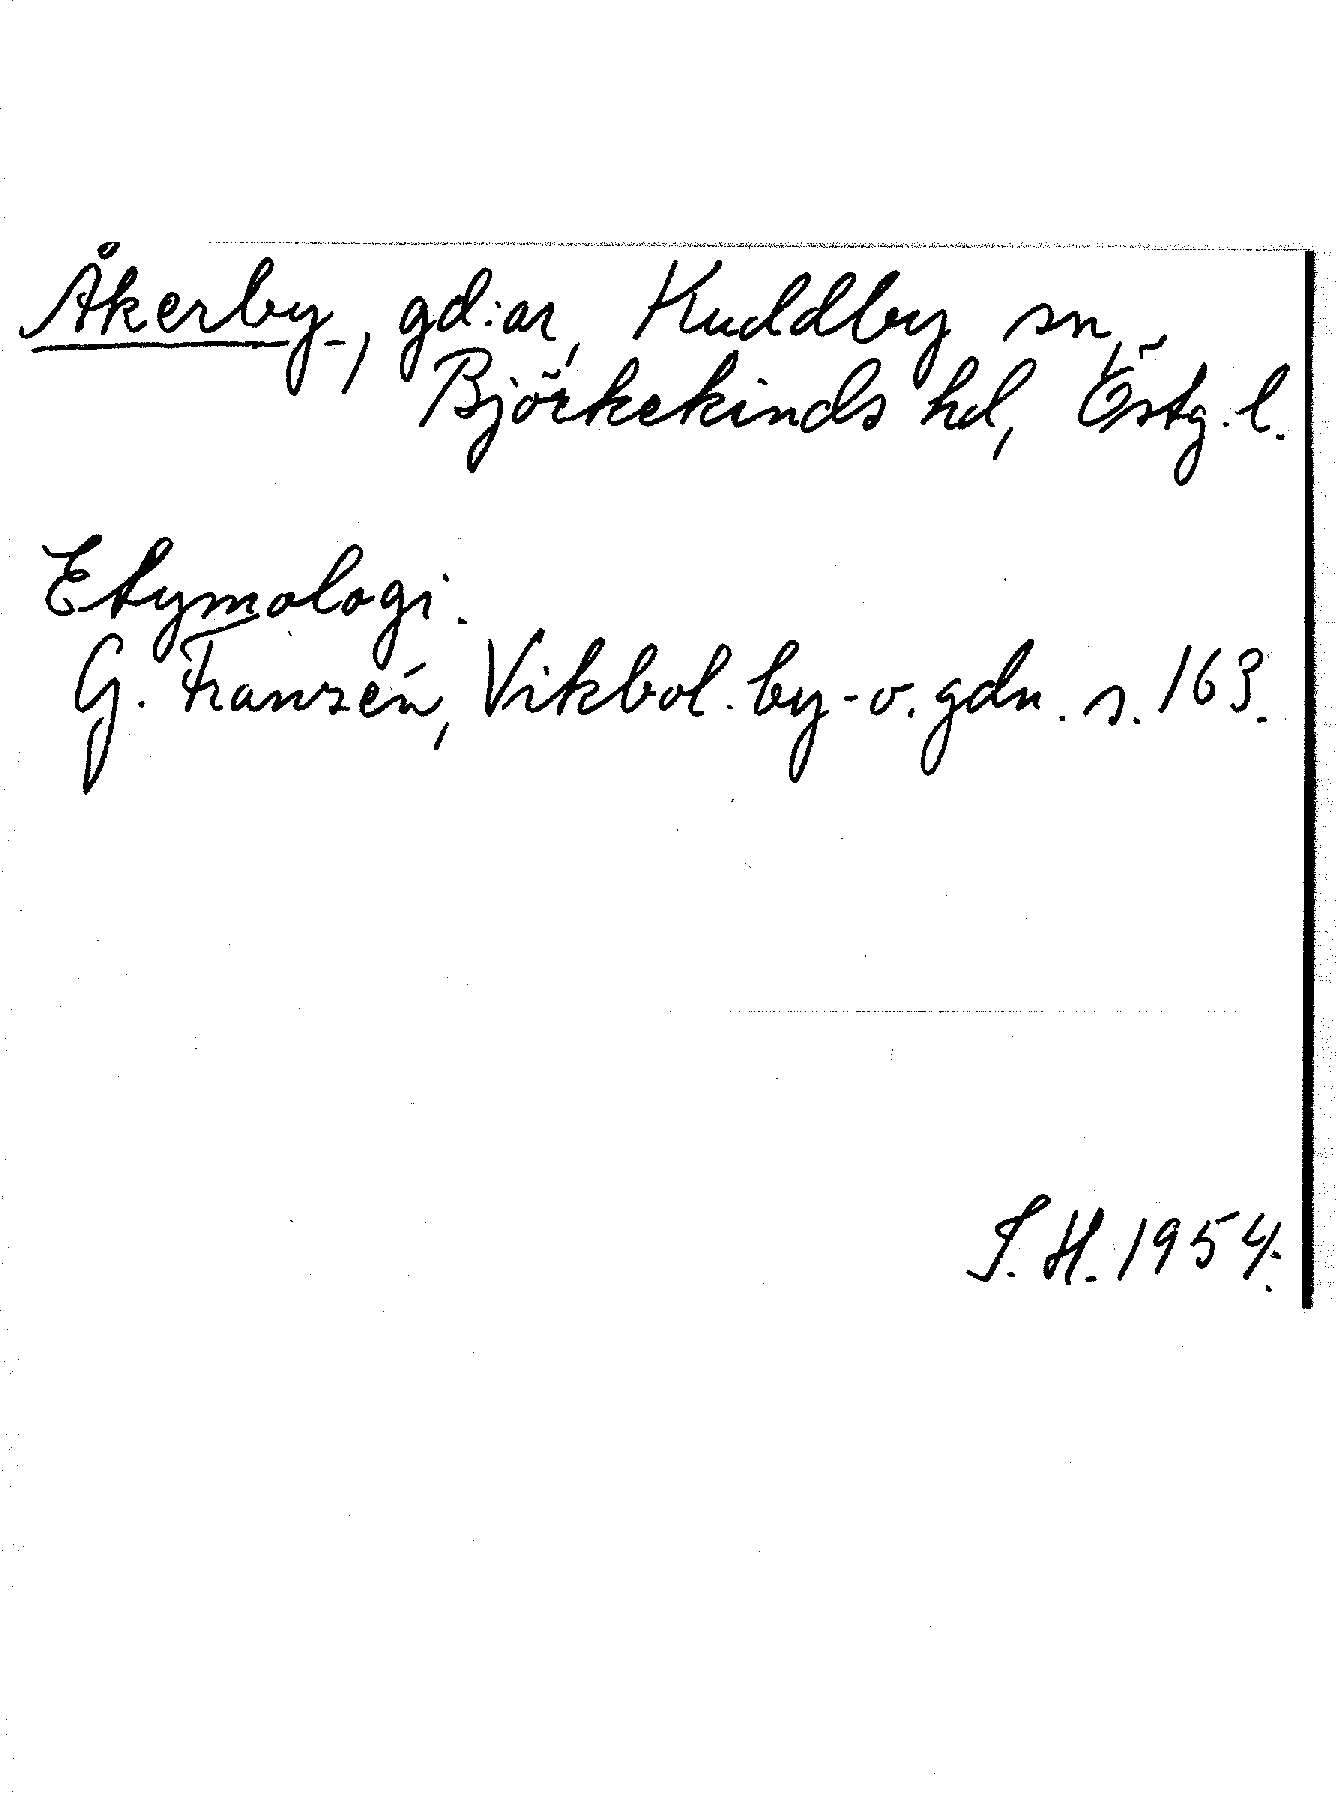 Åkerby, gd:ar, Kuddby sn,
Björkekinds hd, Östg.l.
Etymologi.
G. Franzén, Vikbol. by- o. gdn. s. 163.
S. H. 1954.